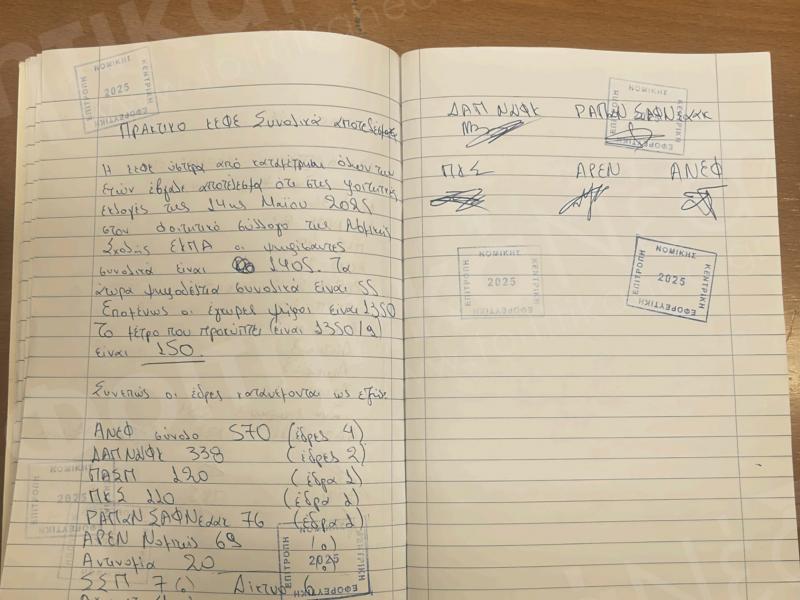 ΠΡΑΚΤΙΚΟ ΚΕΦΕ Συνολικά αποτελέσματα
Η κεφε ύστερα από καταμέτρηση όλων των
ετών έβγαλε αποτέλεσμα ότι στις φοιτητικές
εκλογές της 14ης Μαΐου 2025
στον φοιτητικό σύλλογο της Νομικής
Σχολής ΕΚΠΑ οι ψηφίσαντες
συνολικά είναι 1405. Τα
άκυρα ψηφοδέλτια συνολικά είναι 55
Επομένως οι έγκυρες ψήφοι είναι 1350
Το μέτρο που προκύπτει (είναι 1350/9)
είναι 150.
Συνεπώς οι έδρες κατανέμονται ως εξής:
ΑΝΕΦ σύνολο 570 (έδρες 4)
ΔΑΠ ΝΔΦΚ 338 (έδρες 2)
ΠΑΣΠ 120 (έδρα 1)
ΠΚΣ 110 (έδρα 1)
ΡΑΠαΝ ΣΑΦΝεαακ 76 (έδρα 1)
ΑΡΕΝ Νομικής 69 (0)
Αντινομία 20
ΣΣΠ 7 (0) Δίκτυο 6
ΔΑΠ ΝΔΦΚ ΡΑΠαΝ ΣΑΦΝεαακ
ΠΚΣ ΑΡΕΝ ΑΝΕΦ
ΝΟΜΙΚΗΣ
ΚΕΝΤΡΙΚΗ
ΕΦΟΡΕΥΤΙΚΗ
ΕΠΙΤΡΟΠΗ
2025
ΝΟΜΙΚΗΣ
ΚΕΝΤΡΙΚΗ
ΕΦΟΡΕΥΤΙΚΗ
ΕΠΙΤΡΟΠΗ
2025